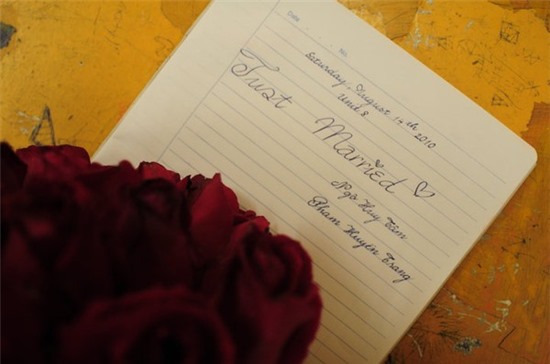 Date
No.
Saturday, August 14th, 2010
Unit 8
Just Married
Ngô Huy Tâm
Phạm Huyền Trang